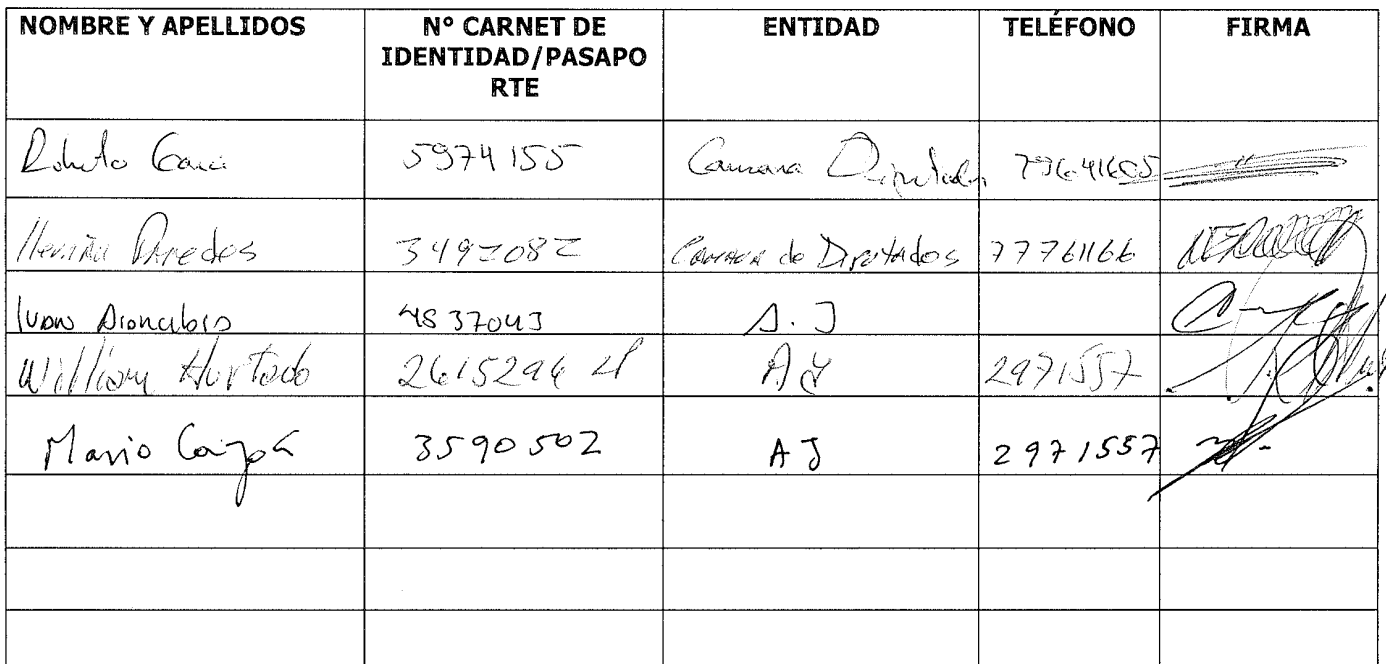 NOMBRE Y APELLIDOS N° CARNET DE IDENTIDAD/PASAPO RTE ENTIDAD TELÉFONO FIRMA
5974155 Camara Diputados 79641605
Paredes 3492082 Camara de Diputados 77761166
Ivan 4837043 A.J
William Hurtado 2615296 AJ 2971557
Mario 3590502 AJ 2971557